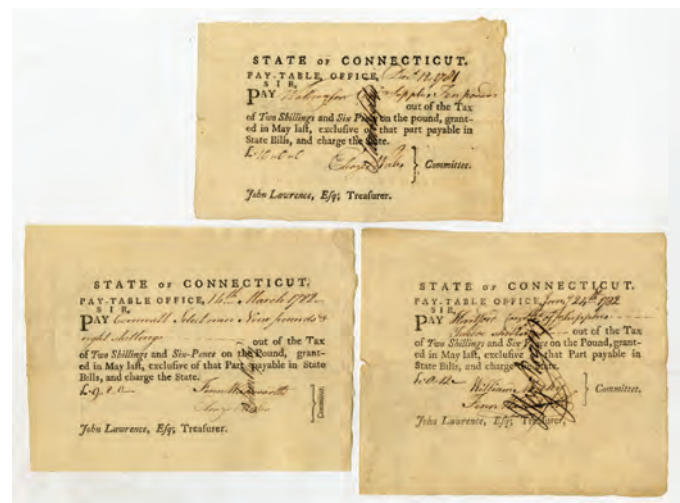 STATE OF CONNECTICUT.
PAY-TABLE OFFICE, 1781
SIR,
PAY Supplies Ten pounds
out of the Tax
of Two Shillings and Six Pence on the pound, grant-
ed in May last, exclusive of that part payable in
State Bills, and charge the State.
Committee.
John Lawrence, Esq; Treasurer.
STATE OF CONNECTICUT.
PAY-TABLE OFFICE, 14th March 1782
SIR,
PAY Cornwall Select men Nine pounds &
eight shillings out of the Tax
of Two Shillings and Six-Pence on the Pound, grant-
ed in May last, exclusive of that Part payable in State
Bills, and charge the State.
Fenn Wadsworth
Committee.
John Lawrence, Esq; Treasurer.
STATE OF CONNECTICUT.
PAY-TABLE OFFICE, 24th 1782
SIR,
PAY Hartford
out of the Tax
of Two Shillings and Six Pence on the Pound, grant-
ed in May last, exclusive of that Part payable in
State Bills, and charge the State.
William
Fenn
Committee.
John Lawrence, Esq; Treasurer,